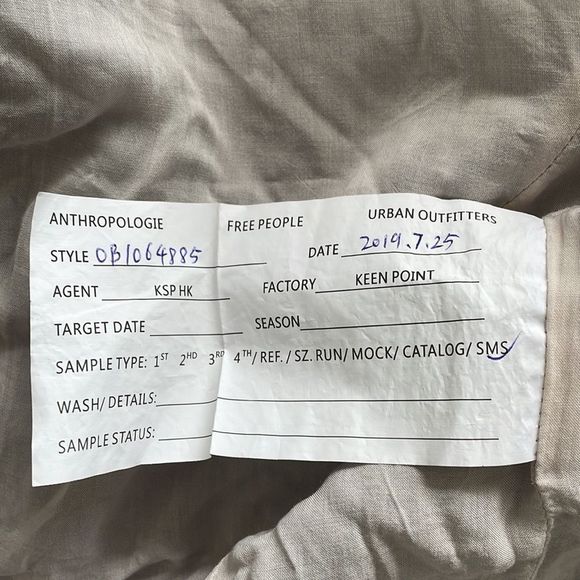 ANTHROPOLOGIE FREE PEOPLE URBAN OUTFITTERS
STYLE OB1064885 DATE 2019.7.25
AGENT KSP HK FACTORY KEEN POINT
TARGET DATE SEASON
SAMPLE TYPE: 1ST 2HD 3RD 4TH/ REF. / SZ. RUN/ MOCK/ CATALOG/ SMS
WASH/ DETAILS:
SAMPLE STATUS: